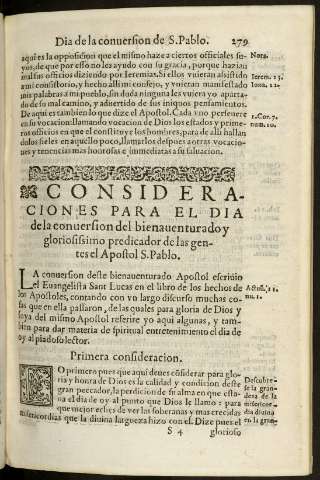 Dia de la conuersion de S. Pablo. 279
aqui es la opposicion que el mismo haze a ciertos officiales su-
yos, de que por esso no les ayudo con su gracia, porque hazian
mal sus officios diziendo por Ieremias. Si ellos vuieran assistido
a mi consistorio, y hecho alli mi consejo, y vuieran manifestado
mis palabras a mi pueblo, sin duda ninguna les vuiera yo aparta-
do de su mal camino, y aduertido de sus iniquos pensamientos.
De aqui es tambien lo que dize el Apostol. Cada vno perseuere
en su vocacion llamando vocacion de Dios los estados y prime-
ros officios en que el constituye los hombres, para de alli hallan
dolos fieles en aquello poco, llamarlos despues a otras vocacio-
nes y tenencias mas honrosas e immediatas a su saluacion.
Nota.
Ierem. 23.
1. Cor. 7.
num. 20.
CONSIDERA-
CIONES PARA EL DIA
de la conuersion del bienauenturado y
gloriosissimo predicador de las gen-
tes el Apostol S. Pablo.
LA conuersion deste bienauenturado Apostol escriuio
el Euangelista Sant Lucas en el libro de los hechos de
los Apostoles, contando con vn largo discurso muchas co-
sas que en ella passaron, de las quales para gloria de Dios y
loya del mismo Apostol referire yo aqui algunas, y tam-
bien para dar materia de spiritual entretenimiento el dia de
oy al piadoso lector.
nu. 1.
Primera consideracion.
LO primero pues que aqui deues cõsiderar para glo-
ria y honra de Dios es la calidad y condicion deste
gran peccador, la perdicion de su alma en que esta-
ua el dia de oy al punto que Dios le llamo: para
que mejor eches de ver las soberanas y mas crecidas
misericordias que la diuina largueza hizo con el. Dize pues el
Descubre-
se la gran-
deza de la
misericor-
dia diuina
en la gran-
S 4 glorioso